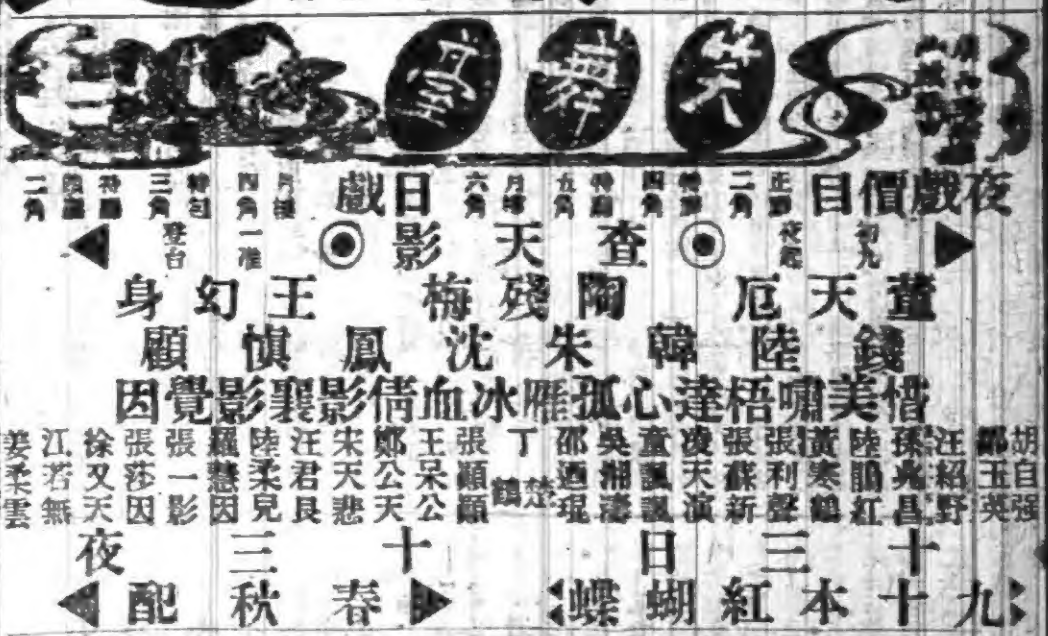 笑舞臺
夜戲價目 正廳二角 四角 五角 月樓六角 日戲 月樓四角 特包三角 特廳 二角
初九夜起 查天影 一准登台
董天厄 陶殘梅 王幻身
錢陸韓朱沈鳳慎顧
惜美嘯梧達心孤雁冰血倩影襄影覺因
胡自强
鄒玉英
汪紹野
孫兆昌
陸鵑紅
黃寒鶴
張利聲
張蘇新
凌天演
童諷諷
吳湘濤
邵迺琨
丁楚鶴
張顧顧
王呆公
鄭公天
宋天悲
汪君良
陸柔兒
羅慧因
張一影
張莎因
徐又天
江若無
姜柔雲
十三日 十三夜
九十本紅蝴蝶 春秋配